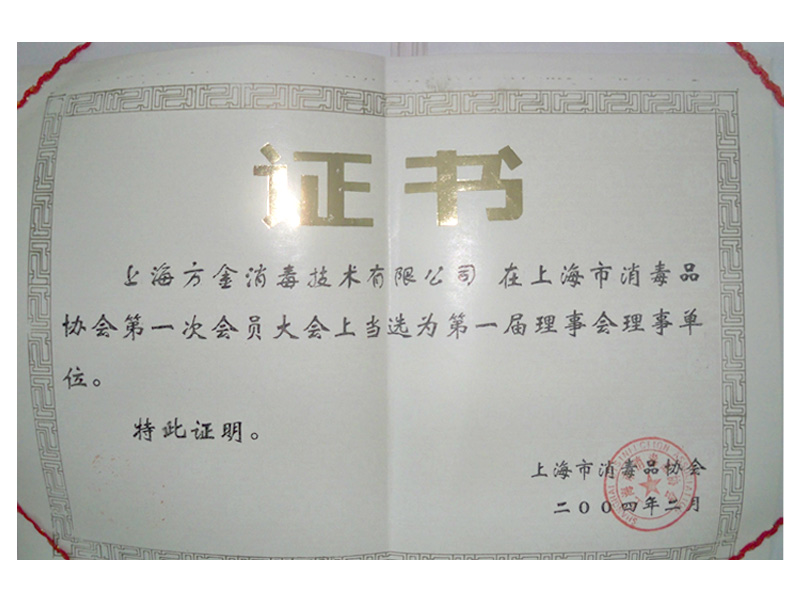 证书
上海方金消毒技术有限公司 在上海市消毒品
协会第一次会员大会上当选为第一届理事会理事单
位。
特此证明。
上海市消毒品协会
二00四年二月